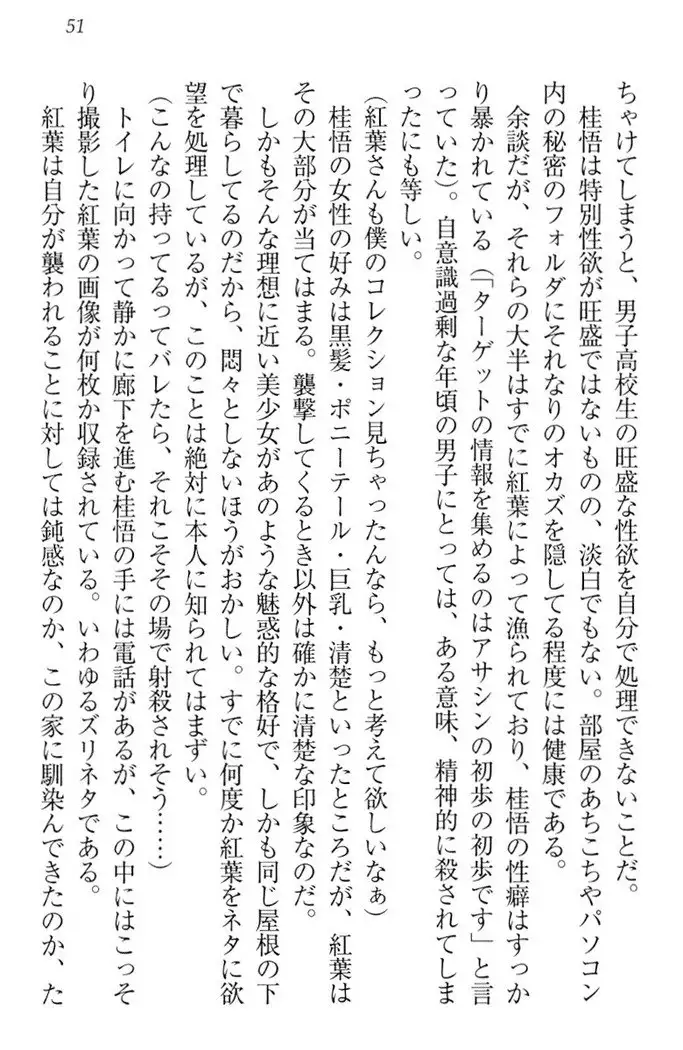 51
ちゃけてしまうと、男子高校生の旺盛な性欲を自分で処理できないことだ。
桂悟は特別性欲が旺盛ではないものの、淡白でもない。部屋のあちこちやパソコン
内の秘密のフォルダにそれなりのオカズを隠してる程度には健康である。
余談だが、それらの大半はすでに紅葉によって漁られており、桂悟の性癖はすっか
り暴かれている(「ターゲットの情報を集めるのはアサシンの初歩の初歩です」と言
っていた)。自意識過剰な年頃の男子にとっては、ある意味、精神的に殺されてしま
ったにも等しい。
(紅葉さんも僕のコレクション見ちゃったんなら、もっと考えて欲しいなぁ)
桂悟の女性の好みは黒髪・ポニーテール・巨乳・清楚といったところだが、紅葉は
その大部分が当てはまる。襲撃してくるとき以外は確かに清楚な印象なのだ。
しかもそんな理想に近い美少女があのような魅惑的な格好で、しかも同じ屋根の下
で暮らしてるのだから、悶々としないほうがおかしい。すでに何度か紅葉をネタに欲
望を処理しているが、このことは絶対に本人に知られてはまずい。
(こんなの持ってるってバレたら、それこそその場で射殺されそう……)
トイレに向かって静かに廊下を進む桂悟の手には電話があるが、この中にはこっそ
り撮影した紅葉の画像が何枚か収録されている。いわゆるズリネタである。
紅葉は自分が襲われることに対しては鈍感なのか、この家に馴染んできたのか、た